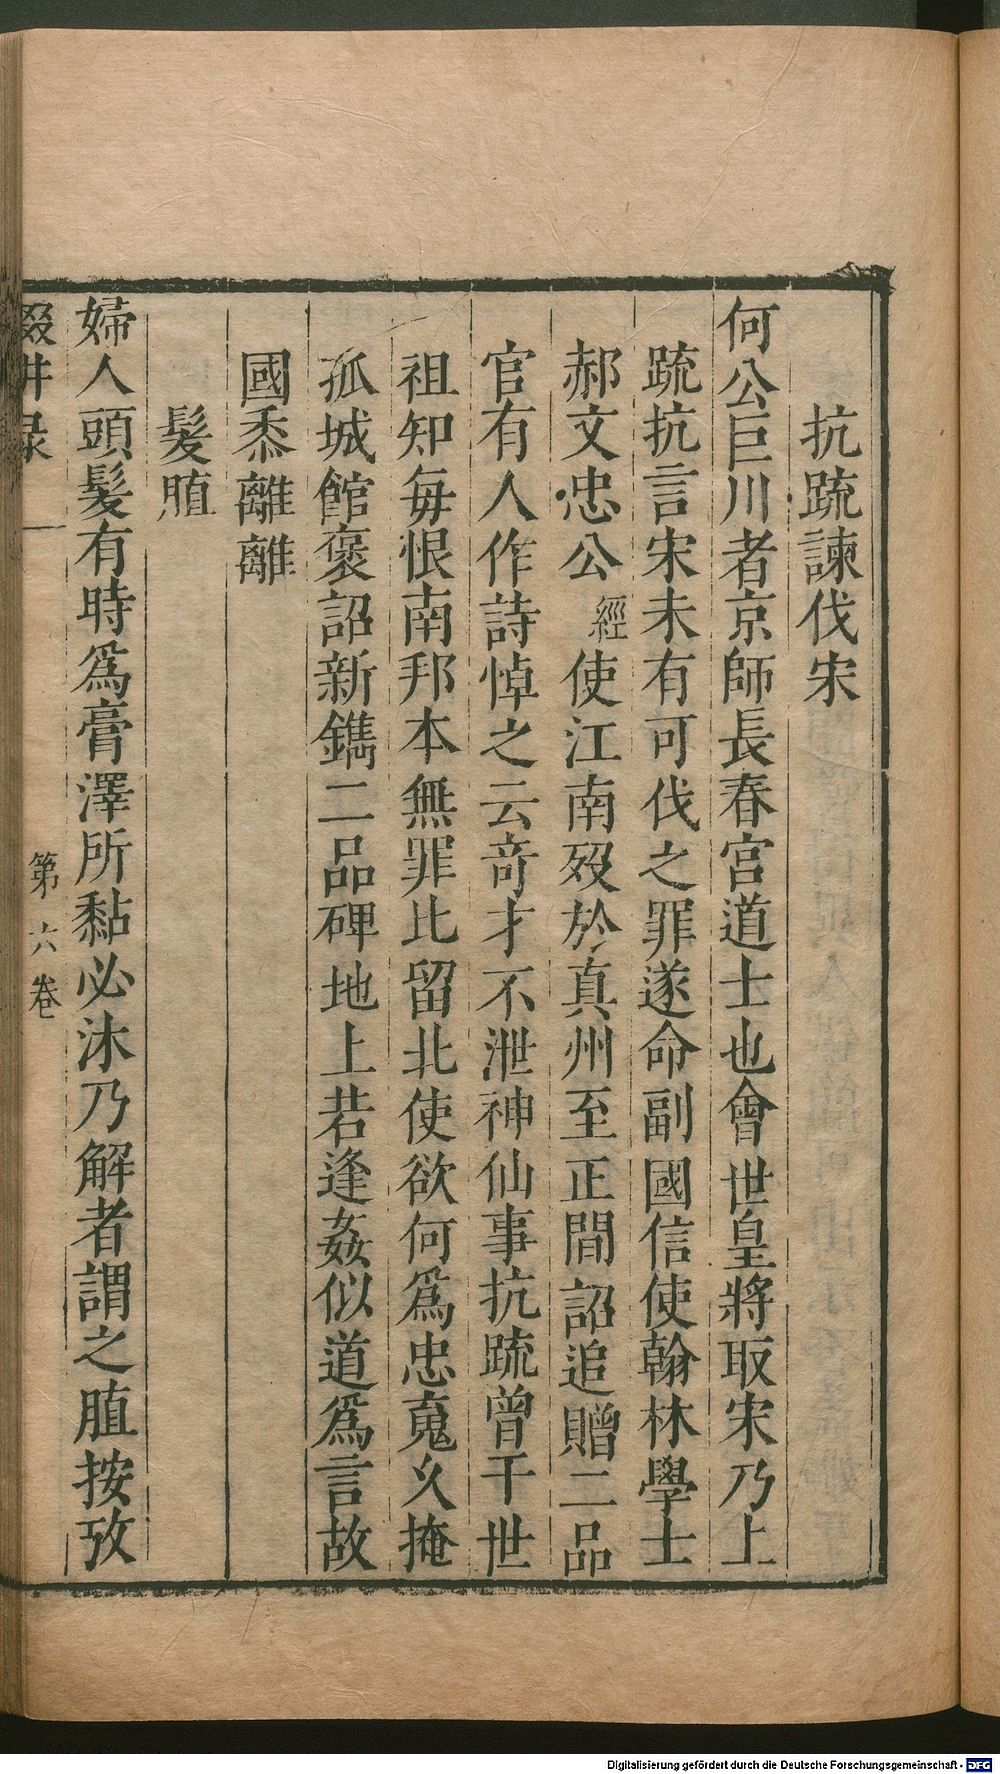 抗疏諫伐宋
何公巨川者京師長春宮道士也會世皇將取宋乃上
疏抗言宋未有可伐之罪遂命副國信使翰林學士
郝文忠公經使江南歿於真州至正間詔追贈二品
官有人作詩悼之云奇才不泄神仙事抗疏曾干世
祖知每恨南邦本無罪比留北使欲何爲忠䰟久掩
孤城館褒詔新鐫二品碑地上若逢姦似道爲言故
國黍離離
髮䐈
婦人頭髮有時爲膏澤所黏必沐乃解者謂之䐈按攷
輟畊录
第六卷
Digitalisierung gefördert durch die Deutsche Forschungsgemeinschaft - DFG